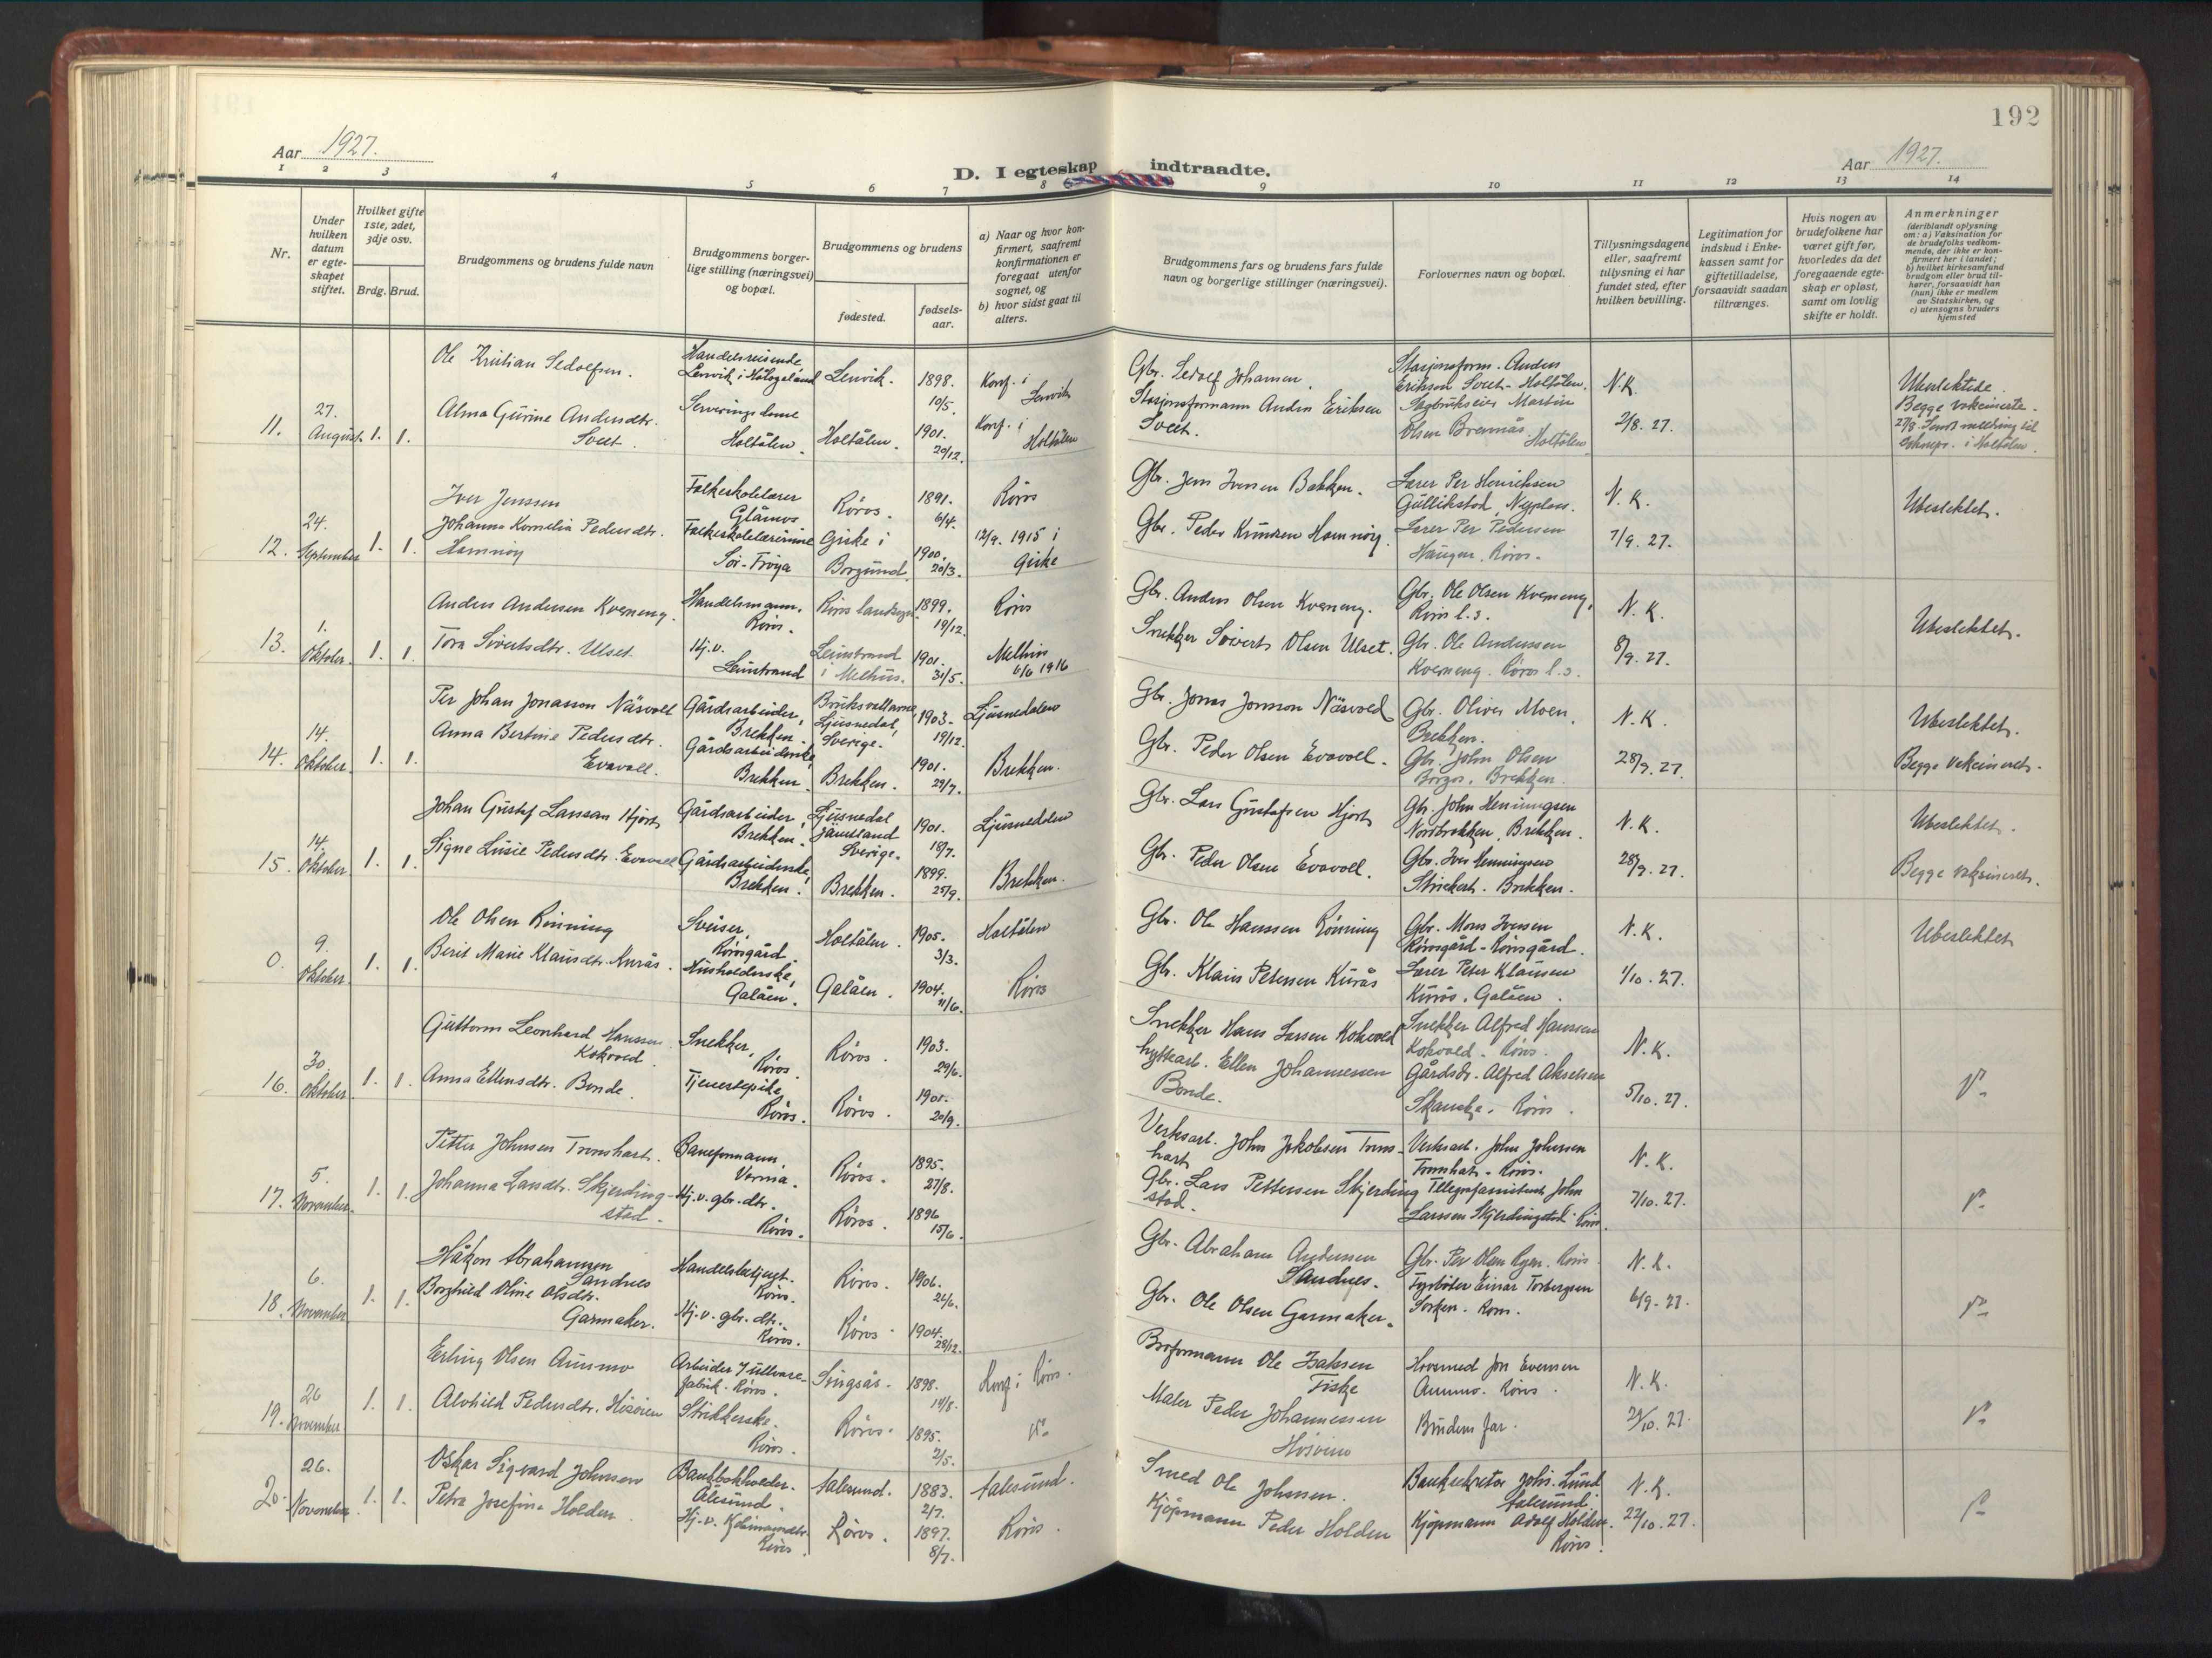 192
Aar 1927.
D. I egteskap indtraadte.
Aar 1927.
1 2 3 4 5 6 7 8 9 10 11 12 13 14
Nr.
Under hvilken datum er egteskapet stiftet.
Hvilket gifte 1ste, 2det, 3dje osv.
Brdg. Brud.
Brudgommens og brudens fulde navn
Brudgommens borgerlige stilling (næringsvei) og bopæl.
Brudgommens og brudens
fødested.
fødselsaar.
a) Naar og hvor konfirmert, saafremt konfirmationen er foregaat utenfor sognet, og
b) hvor sidst gaat til alters.
Brudgommens fars og brudens fars fulde navn og borgerlige stillinger (næringsvei).
Forlovernes navn og bopæl.
Tillysningsdagene eller, saafremt tillysning ei har fundet sted, efter hvilken bevilling.
Legitimation for indskud i Enkekassen samt for giftetilladelse, forsaavidt saadan tiltrænges.
Hvis nogen av brudefolkene har været gift før, hvorledes da det foregaaende egteskap er opløst, samt om lovlig skifte er holdt.
Anmerkninger
(deriblandt oplysning om: a) Vaksination for de brudefolks vedkommende, der ikke er konfirmert her i landet; b) hvilket kirkesamfund brudgom eller brud tilhører, forsaavidt han (hun) ikke er medlem av Statskirken, og c) utensogns bruders hjemsted
11. 27. August 1. 1.
Ole Kristian Sedolfsen.
Handelsreisende Lenvik i Hålogaland
Lenvik.
1898. 10/5.
Konf. i Lenvik
Gbr. Sedolf Johansen.
Stasjonsform. Anders Eriksen Svet - Holtålen.
N.K.
Ubeslektede.
Begge vakcinerte.
Alma Gurine Andersdtr. Svet.
Serveringsdame Holtålen.
Holtålen.
1901. 20/12.
Konf. i Holtålen
Stasjonsformann Anders Eriksen Svet.
Sagbrukseier Martin Olsen Brennås Holtålen.
2/8. 27.
27/8. Sendt melding til Soknepr. i Holtålen.
12. 24. September 1. 1.
Iver Jenssen
Folkeskolelærer Glåmos
Røros.
1891. 6/4.
Røros
Gbr. Jens Iversen Bakken.
Lærer Per Henriksen Gullikstad, Nyplass.
N.K.
Ubeslektet.
Johanna Kornelia Pedersdtr. Hamnøy
Folkeskolelærerinne Sør-Frøya
Giske i Borgund.
1900. 20/3.
12/9. 1915 i Giske
Gbr. Peder Knudsen Hamnøy.
Lærer Per Pedersen Haugen. Røros.
7/9. 27.
13. 1. Oktober. 1. 1.
Anders Andersen Kverneng.
Handelsmann. Røros.
Røros landsogn.
1899. 19/12.
Røros
Gbr. Anders Olsen Kverneng.
Gbr. Ole Olsen Kverneng, Røros l.s.
N.K.
Ubeslektet.
Tora Sivertsdtr. Ulset.
Hj.v. Leinstrand
Leinstrand i Melhus.
1901. 31/5.
Melhus 6/6 1916
Snekker Sivert Olsen Ulset.
Gbr. Ole Anderssen Kverneng. Røros l.s.
8/9. 27.
14. 14. Oktober. 1. 1.
Per Johan Jonasson Näsvall
Gårdsarbeider, Brekken.
Bruksvallarna, Ljusnedal, Sverige.
1903. 19/12.
Ljusnedalen
Gbr. Jonas Jonsson Näsvold
Gbr. Oliver Moen, Brekken.
N.K.
Ubeslektet.
Anna Bertine Pedersdtr. Evavoll.
Gårdsarbeiderske, Brekken.
Brekken.
1901. 29/7.
Brekken.
Gbr. Peder Olsen Evavoll.
Gbr. John Olsen Borgos. Brekken.
28/9. 27.
Begge vakcineret.
15. 14. Oktober 1. 1.
Johan Gustaf Larssan Hjort
Gårdsarbeider, Brekken.
Ljusnedal Jämtland Sverige.
1901. 18/7.
Ljusnedalen
Gbr. Lars Gustafsen Hjort
Gbr. John Henningsen Nordbrekken, Brekken.
N.K.
Ubeslektet.
Signe Lusie Pedersdtr. Evavoll
Gårdsarbeiderske, Brekken.
Brekken.
1899. 25/9.
Brekken.
Gbr. Peder Olsen Evavoll.
Gbr. Iver Henningsen Stikkert. Brekken.
28/9. 27.
Begge vakcineret.
0. 9. Oktober. 1. 1.
Ole Olsen Rønning
Sveiser, Rørosgård.
Holtålen.
1905. 3/3.
Holtålen
Gbr. Ole Hanssen Rønning
Gbr. Mons Iversen Rørosgård - Rørosgård.
N.K.
Ubeslektet
Berit Marie Klausdtr. Kurås.
Husholderske, Galåen.
Galåen.
1904. 11/6.
Røros
Gbr. Klaus Petersen Kurås
Lærer Peter Klausen Kurås, Galåen.
1/10. 27.
16. 30. Oktober. 1. 1.
Guttorm Leonhard Hanssen Kokvold
Snekker, Røros.
Røros.
1903. 29/6.
Snekker Hans Larsen Kokvold
Snekker Alfred Hanssen Kokvold - Røros.
N.K.
Anna Ellensdtr. Bonde.
Tjenestepike, Røros.
Røros.
1901. 20/9.
Hyttearb. Ellen Johannessen Bonde.
Gårdsbr. Alfred Akselsen Skancke. Røros.
5/10. 27.
17. 5. November. 1. 1.
Petter Johnsen Tronshart.
Baneformann, Verma.
Røros.
1895. 27/8.
Verksarb. John Jakobsen Tronshart
Verksarb. John Johnsen Tronshart - Røros.
N.K.
Johanna Larsdtr. Skjerdingstad.
Hj.v. gbr. dtr. Røros.
Røros.
1896 15/6.
Gbr. Lars Pettersen Skjerdingstad.
Telegrafassistent John Larssen Skjerdingstad. Røros.
7/10. 27.
18. 6. November 1. 1.
Håkon Abrahamsen Sandnes
Handelsbetjent. Røros.
Røros.
1906. 26/6.
Gbr. Abraham Andersen Sandnes.
Gbr. Per Olsen Ryen. Røros.
N.K.
Borghild Oline Olsdtr. Garmaker.
Hj.v. gbr. dtr. Røros.
Røros.
1904. 28/12.
Gbr. Ole Olsen Garmaker.
Fyrbøter Einar Torbergsen Sorken. Røros.
6/9. 27.
19. 26 November 1. 1.
Erling Olsen Aunmo
Arbeider Tullvarefabrik. Røros.
Singsås.
1898. 14/8.
Konf. i Røros.
Broformann Ole Isaksen Fiske
Hovsmed Jon Evensen Aunmo. Røros.
N.K.
Alvhild Pedersdtr. Høsøien
Strikkerske. Røros.
Røros.
1895. 2/5.
Maler Peder Johannessen Høsøien
Brudens far.
29/10. 27.
20. 26. November 1. 1.
Oskar Sigvard Johnsen
Bankbokholder. Ålesund.
Aalesund.
1883. 2/7.
Aalesund.
Smed Ole Johnsen.
Banksekretær Johs. Lund Aalesund.
N.K.
Petra Josefine Holden
Hj.v. Kjøpmannsdtr. Røros
Røros.
1897. 8/7.
Røros.
Kjøpmann Peder Holden
Kjøpmann Adolf Holden. Røros.
22/10. 27.